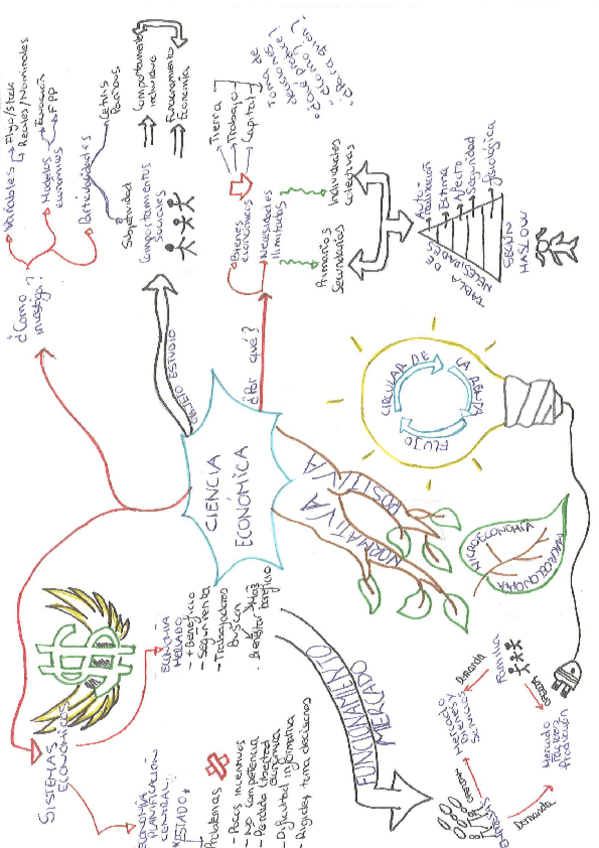 CIENCIA
ECONÓMICA
¿Cómo
investiga?
Variables
Flujo/stock
Reales/Nominales
Modelos
económicos
Evolución
FPP
Particularidades
Cetris
Paribus
Subjetividad
OBJETO ESTUDIO
Comportamientos
sociales
Comportamiento
individuo
Funcionamiento
Economía
¿Por qué?
Bienes
económicos
Necesidades
ilimitadas
Tierra
Trabajo
Capital
Toma de
¿Cómo?
¿Para quién?
Primarios
Secundarios
Individuales
colectivas
TABLA DE
NECESIDADES
SEGÚN
MASLOW
Auto-
realización
Estima
Afecto
Seguridad
Fisiológica
FLUJO
CIRCULAR DE
LA RENTA
POSITIVA
NORMATIVA
MICROECONOMÍA
SISTEMAS
ECONÓMICOS
ECONOMÍA
MERCADO
- + Beneficio
- Según renta
- Trabajadores
buscan
Bienestar
Más
beneficio
ECONOMÍA
PLANIFICACIÓN
CENTRAL
ESTADO
Problemas
- Pocos incentivos
- No competencia
- Pérdida libertad
económica
- Dificultad informativa
- Rigidez toma decisiones
FUNCIONAMIENTO
MERCADO
Familia
Demanda
Mercado
Bienes y
Servicios
Oferta
Mercado
Factores
Producción
Demanda
Empresas